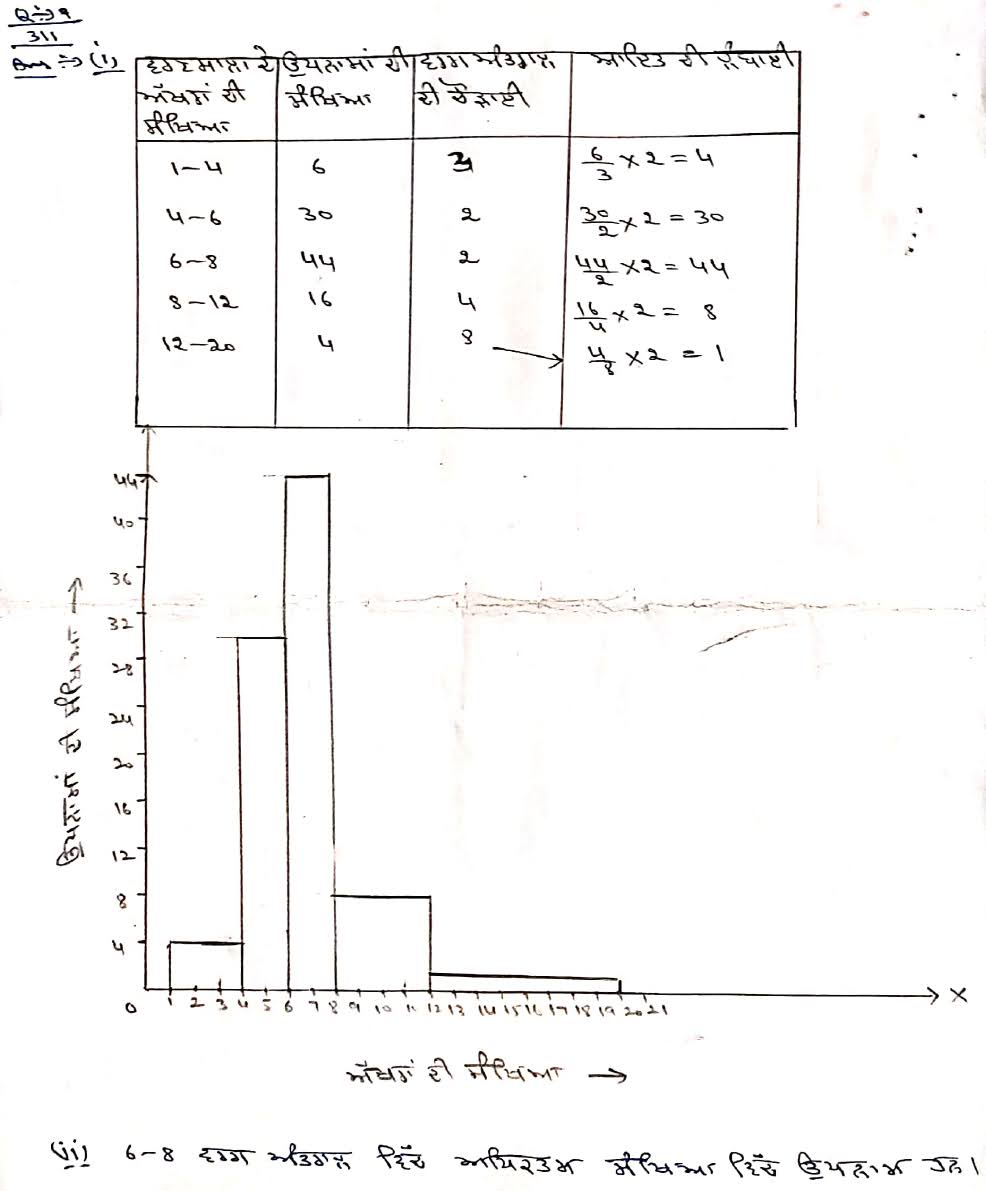 Q÷9
311
Ans ÷> (i)
ਵਰਣਮਾਲਾ ਦੇ ਉਪਨਾਮਾਂ ਦੀ ਵਰਗ ਅੰਤਰਾਲ ਆਇਤ ਦੀ ਲੰਬਾਈ
ਅੱਖਰਾਂ ਦੀ ਸੰਖਿਆ ਦੀ ਚੌੜਾਈ
ਸੰਖਿਆ
1-4 6 3 6/3 × 2 = 4
4-6 30 2 30/2 × 2 = 30
6-8 44 2 44/2 × 2 = 44
8-12 16 4 16/4 × 2 = 8
12-20 4 8 → 4/8 × 2 = 1
44
40
36
32
28
24
20
16
12
8
4
ਉਪਨਾਮਾਂ ਦੀ ਸੰਖਿਆ →
0 1 2 3 4 5 6 7 8 9 10 11 12 13 14 15 16 17 18 19 20 21
X
ਅੱਖਰਾਂ ਦੀ ਸੰਖਿਆ →
(ii) 6-8 ਵਰਗ ਅੰਤਰਾਲ ਵਿੱਚ ਅਧਿਕਤਮ ਸੰਖਿਆ ਵਿੱਚ ਉਪਨਾਮ ਹਨ।